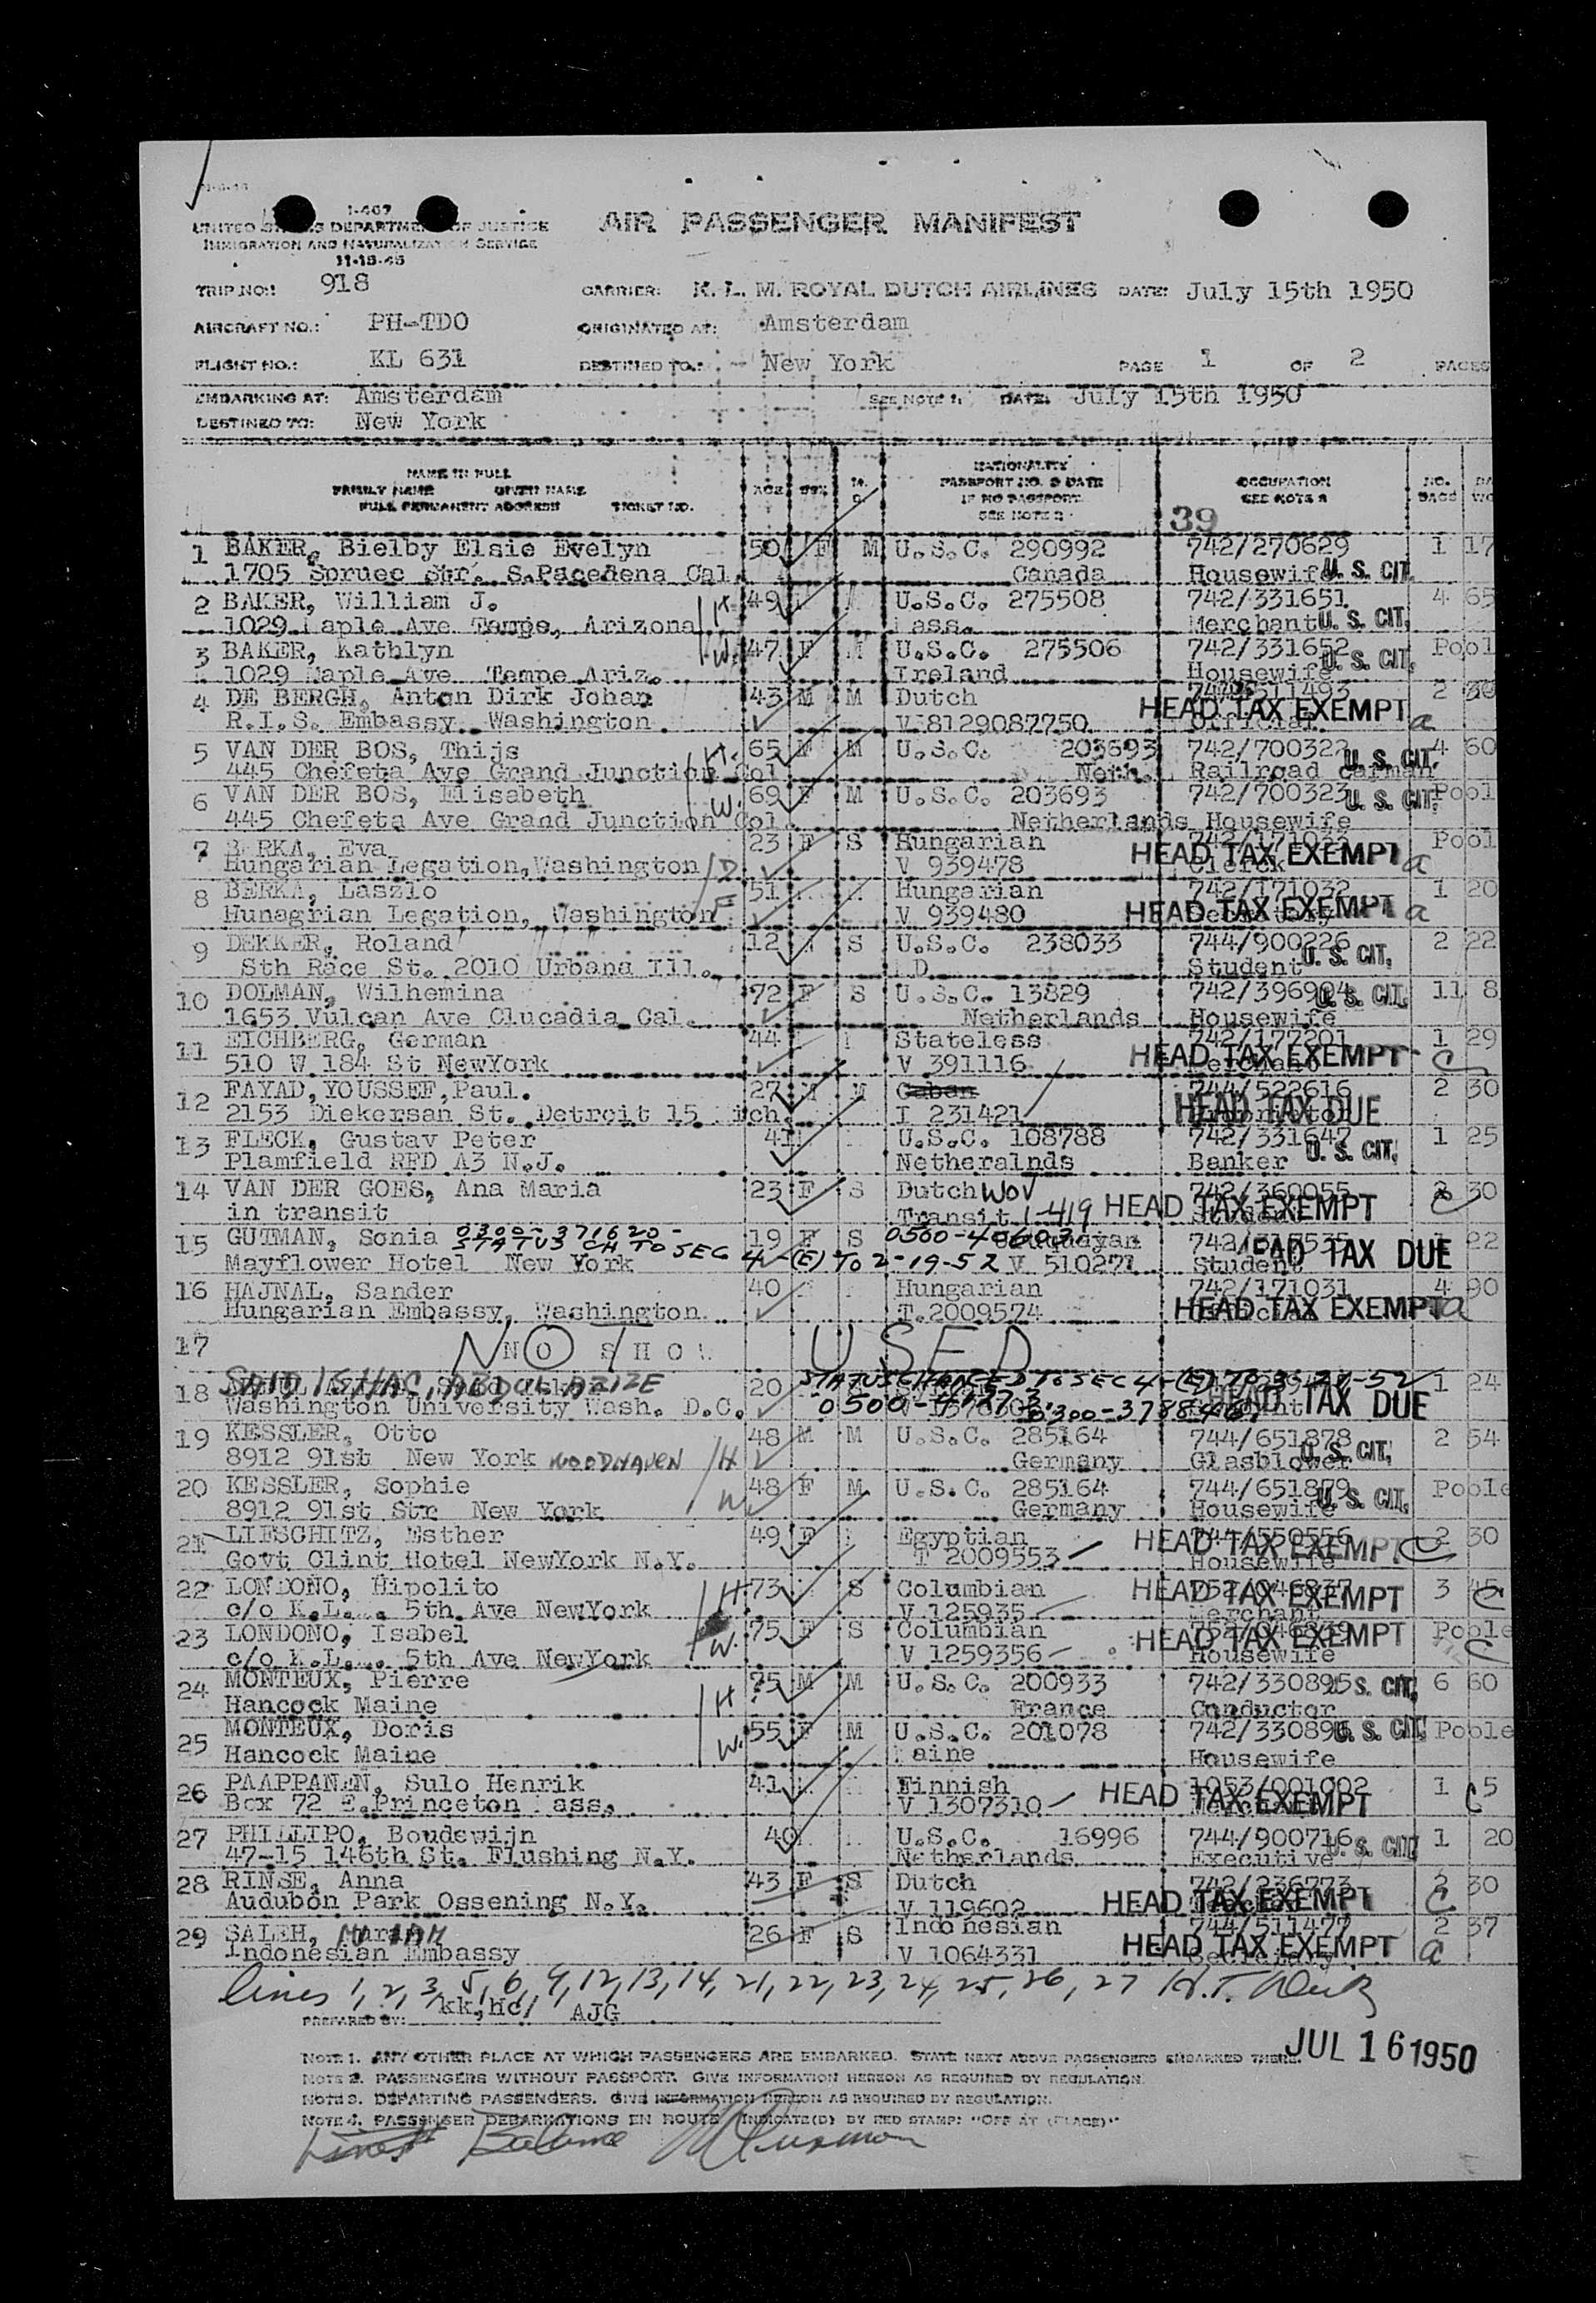 I-467
UNITED STATES DEPARTMENT OF JUSTICE
IMMIGRATION AND NATURALIZATION SERVICE
11-15-45
AIR PASSENGER MANIFEST
TRIP NO.: 918 CARRIER: K. L. M. ROYAL DUTCH AIRLINES DATE: July 15th 1950
AIRCRAFT NO.: PH-TDO ORIGINATED AT: Amsterdam
FLIGHT NO.: KL 631 DESTINED TO: New York PAGE 1 OF 2 PAGES
EMBARKING AT: Amsterdam SEE NOTE 1: DATE: July 15th 1950
DESTINED TO: New York
NAME IN FULL
FAMILY NAME GIVEN NAME
FULL PERMANENT ADDRESS TICKET NO.
AGE SEX
NATIONALITY
PASSPORT NO. & DATE
IF NO PASSPORT
SEE NOTE 2
OCCUPATION
NO. BAGS
39
1 BAKER, Bielby Elsie Evelyn 50 F M U.S.C. 290992 742/270629 1 17
1705 Spruec Str. S.Pacedena Cal. Canada Housewife U. S. CIT.
2 BAKER, William J. H. 49 U.S.C. 275508 742/331651 4 65
1029 Maple Ave Tempe, Arizona Mass. Merchant U. S. CIT.
3 BAKER, Kathlyn W. 47 F M U.S.C. 275506 742/331652 Pool
1029 Maple Ave Tempe Ariz. Ireland Housewife U. S. CIT.
4 DE BERGH, Anton Dirk Johan 43 M M Dutch 2 30
R.I.S. Embassy Washington V 8129087750 HEAD TAX EXEMPT a
5 VAN DER BOS, Thijs H. 65 F M U.S.C. 203693 742/700322 U. S. CIT. 4 60
445 Chefeta Ave Grand Junction Col Neth. Railroad carman
6 VAN DER BOS, Elisabeth W. 69 F M U.S.C. 203693 742/700323 U. S. CIT. Pool
445 Chefeta Ave Grand Junction Col. Netherlands Housewife
7 BERKA, Eva 23 F S Hungarian Pool
Hungarian Legation, Washington D. V 939478 HEAD TAX EXEMPT Clerck a
8 BERKA, Laszlo 51 Hungarian 742/171032 1 20
Hunagrian Legation, Washington F V 939480 HEAD TAX EXEMPT a
9 DEKKER, Roland 12 S U.S.C. 238033 744/900226 2 22
Sth Race St. 2010 Urbana Ill. Student U. S. CIT.
10 DOLMAN, Wilhemina 72 F S U.S.C. 13829 742/396904 U. S. CIT. 11 8
1653 Vulcan Ave Clucadia Cal. Netherlands Housewife
11 EICHBERG, German 44 Stateless 742/177201 1 29
510 W 184 St NewYork V 391116 HEAD TAX EXEMPT C
12 FAYAD, YOUSSEF, Paul. 27 M M Cuban 744/522616 2 30
2153 Diekersan St. Detroit 15 Mich. I 231421 HEAD TAX DUE
13 FLECK, Gustav Peter 41 U.S.C. 108788 742/331647 1 25
Plamfield RFD A3 N.J. Netheralnds Banker U. S. CIT.
14 VAN DER GOES, Ana Maria 23 F S Dutch WOV 742/360055 30
in transit Transit 1-419 HEAD TAX EXEMPT C
15 GUTMAN, Sonia 0300-371620- 19 F S 22
STATUS CH TO SEC 4-(E) TO 2-19-52
Mayflower Hotel New York V 510271 Student HEAD TAX DUE
16 HAJNAL, Sander 40 Hungarian 742/171031 4 90
Hungarian Embassy, Washington T.2009574 HEAD TAX EXEMPT a
17 NO SHOW USED
18 SAID ISHAC, ABDUL AZIZE 20 STATUS CHANGED TO SEC 4-(E) TO 1 24
Washington University Wash. D.C. HEAD TAX DUE
19 KESSLER, Otto 48 M M U.S.C. 285164 744/651878 2 54
8912 91st New York WOODHAVEN H Germany Glasblower U. S. CIT.
20 KESSLER, Sophie 48 F M U.S.C. 285164 744/651879 U. S. CIT. Poole
8912 91st Str New York W. Germany Housewife
21 LIFSCHITZ, Esther 49 F Egyptian 744/550556 2 30
Govt Clint Hotel NewYork N.Y. T 2009553 HEAD TAX EXEMPT Housewife C
22 LONDONO, Hipolito H 73 S Columbian 3 45
c/o K.L.M. 5th Ave NewYork V 125935 HEAD TAX EXEMPT Merchant C
23 LONDONO, Isabel W. 75 F S Columbian Poole
c/o K.L.M. 5th Ave NewYork V 1259356 HEAD TAX EXEMPT Housewife C
24 MONTEUX, Pierre H 75 M M U.S.C. 200933 742/330895 U. S. CIT. 6 60
Hancock Maine France Conductor
25 MONTEUX, Doris W. 55 F M U.S.C. 201078 742/330896 U. S. CIT. Poole
Hancock Maine Maine Housewife
26 PAAPPANEN, Sulo Henrik 41 Finnish 1053/001002 1 5
Box 72 E.Princeton Mass. V 1307310 HEAD TAX EXEMPT C
27 PHILLIPO, Boudewijn 40 U.S.C. 16996 744/900716 1 20
47-15 146th St. Flushing N.Y. Netherlands Executive U. S. CIT.
28 RINSE, Anna 43 F S Dutch 742/236773 2 30
Audubon Park Ossening N.Y. V 119602 HEAD TAX EXEMPT C
29 SALEH, MARIAM 26 F S Indonesian 744/511477 2 37
Indonesian Embassy V 1064331 HEAD TAX EXEMPT Secretary a
lines 1, 2, 3, 5, 6, 9, 12, 13, 14, 21, 22, 23, 24, 25, 26, 27
PREPARED BY: kk, hc/ AJG
JUL 16 1950
NOTE 1. ANY OTHER PLACE AT WHICH PASSENGERS ARE EMBARKED. STATE NEXT ABOVE PASSENGERS EMBARKED THERE.
NOTE 2. PASSENGERS WITHOUT PASSPORT. GIVE INFORMATION HEREON AS REQUIRED BY REGULATION.
NOTE 3. DEPARTING PASSENGERS. GIVE INFORMATION HEREON AS REQUIRED BY REGULATION.
NOTE 4. PASSENGER DEBARKATIONS EN ROUTE INDICATE(D) BY RED STAMP: "OFF AT (PLACE)"
Balance